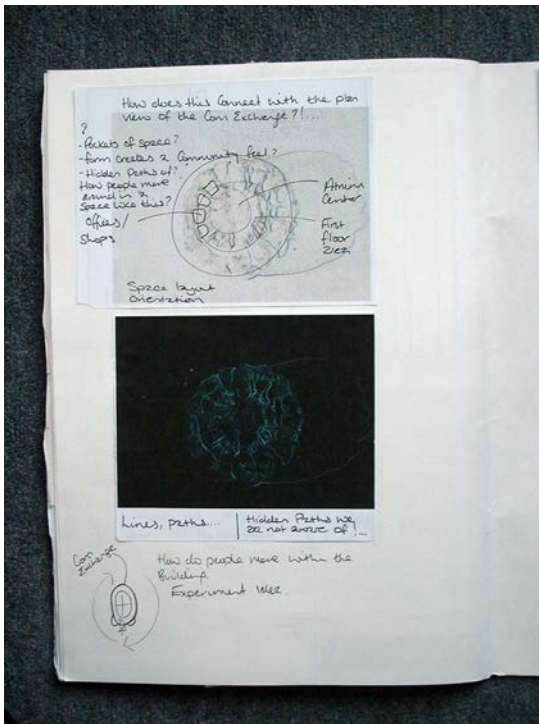 How does this connect with the plan
view of the Corn Exchange?!...
?
- Pockets of space?
- form creates a community feel?
- Hidden Paths of?
How people move
around in a
space like this?
Offices/
Shops
Atrium
Center
First
floor
area
Space layout
orientation
Lines, paths....
Hidden Paths we
do not aware of!...
Corn
Exchange
How do people move within the
Building.
Experiment idea.